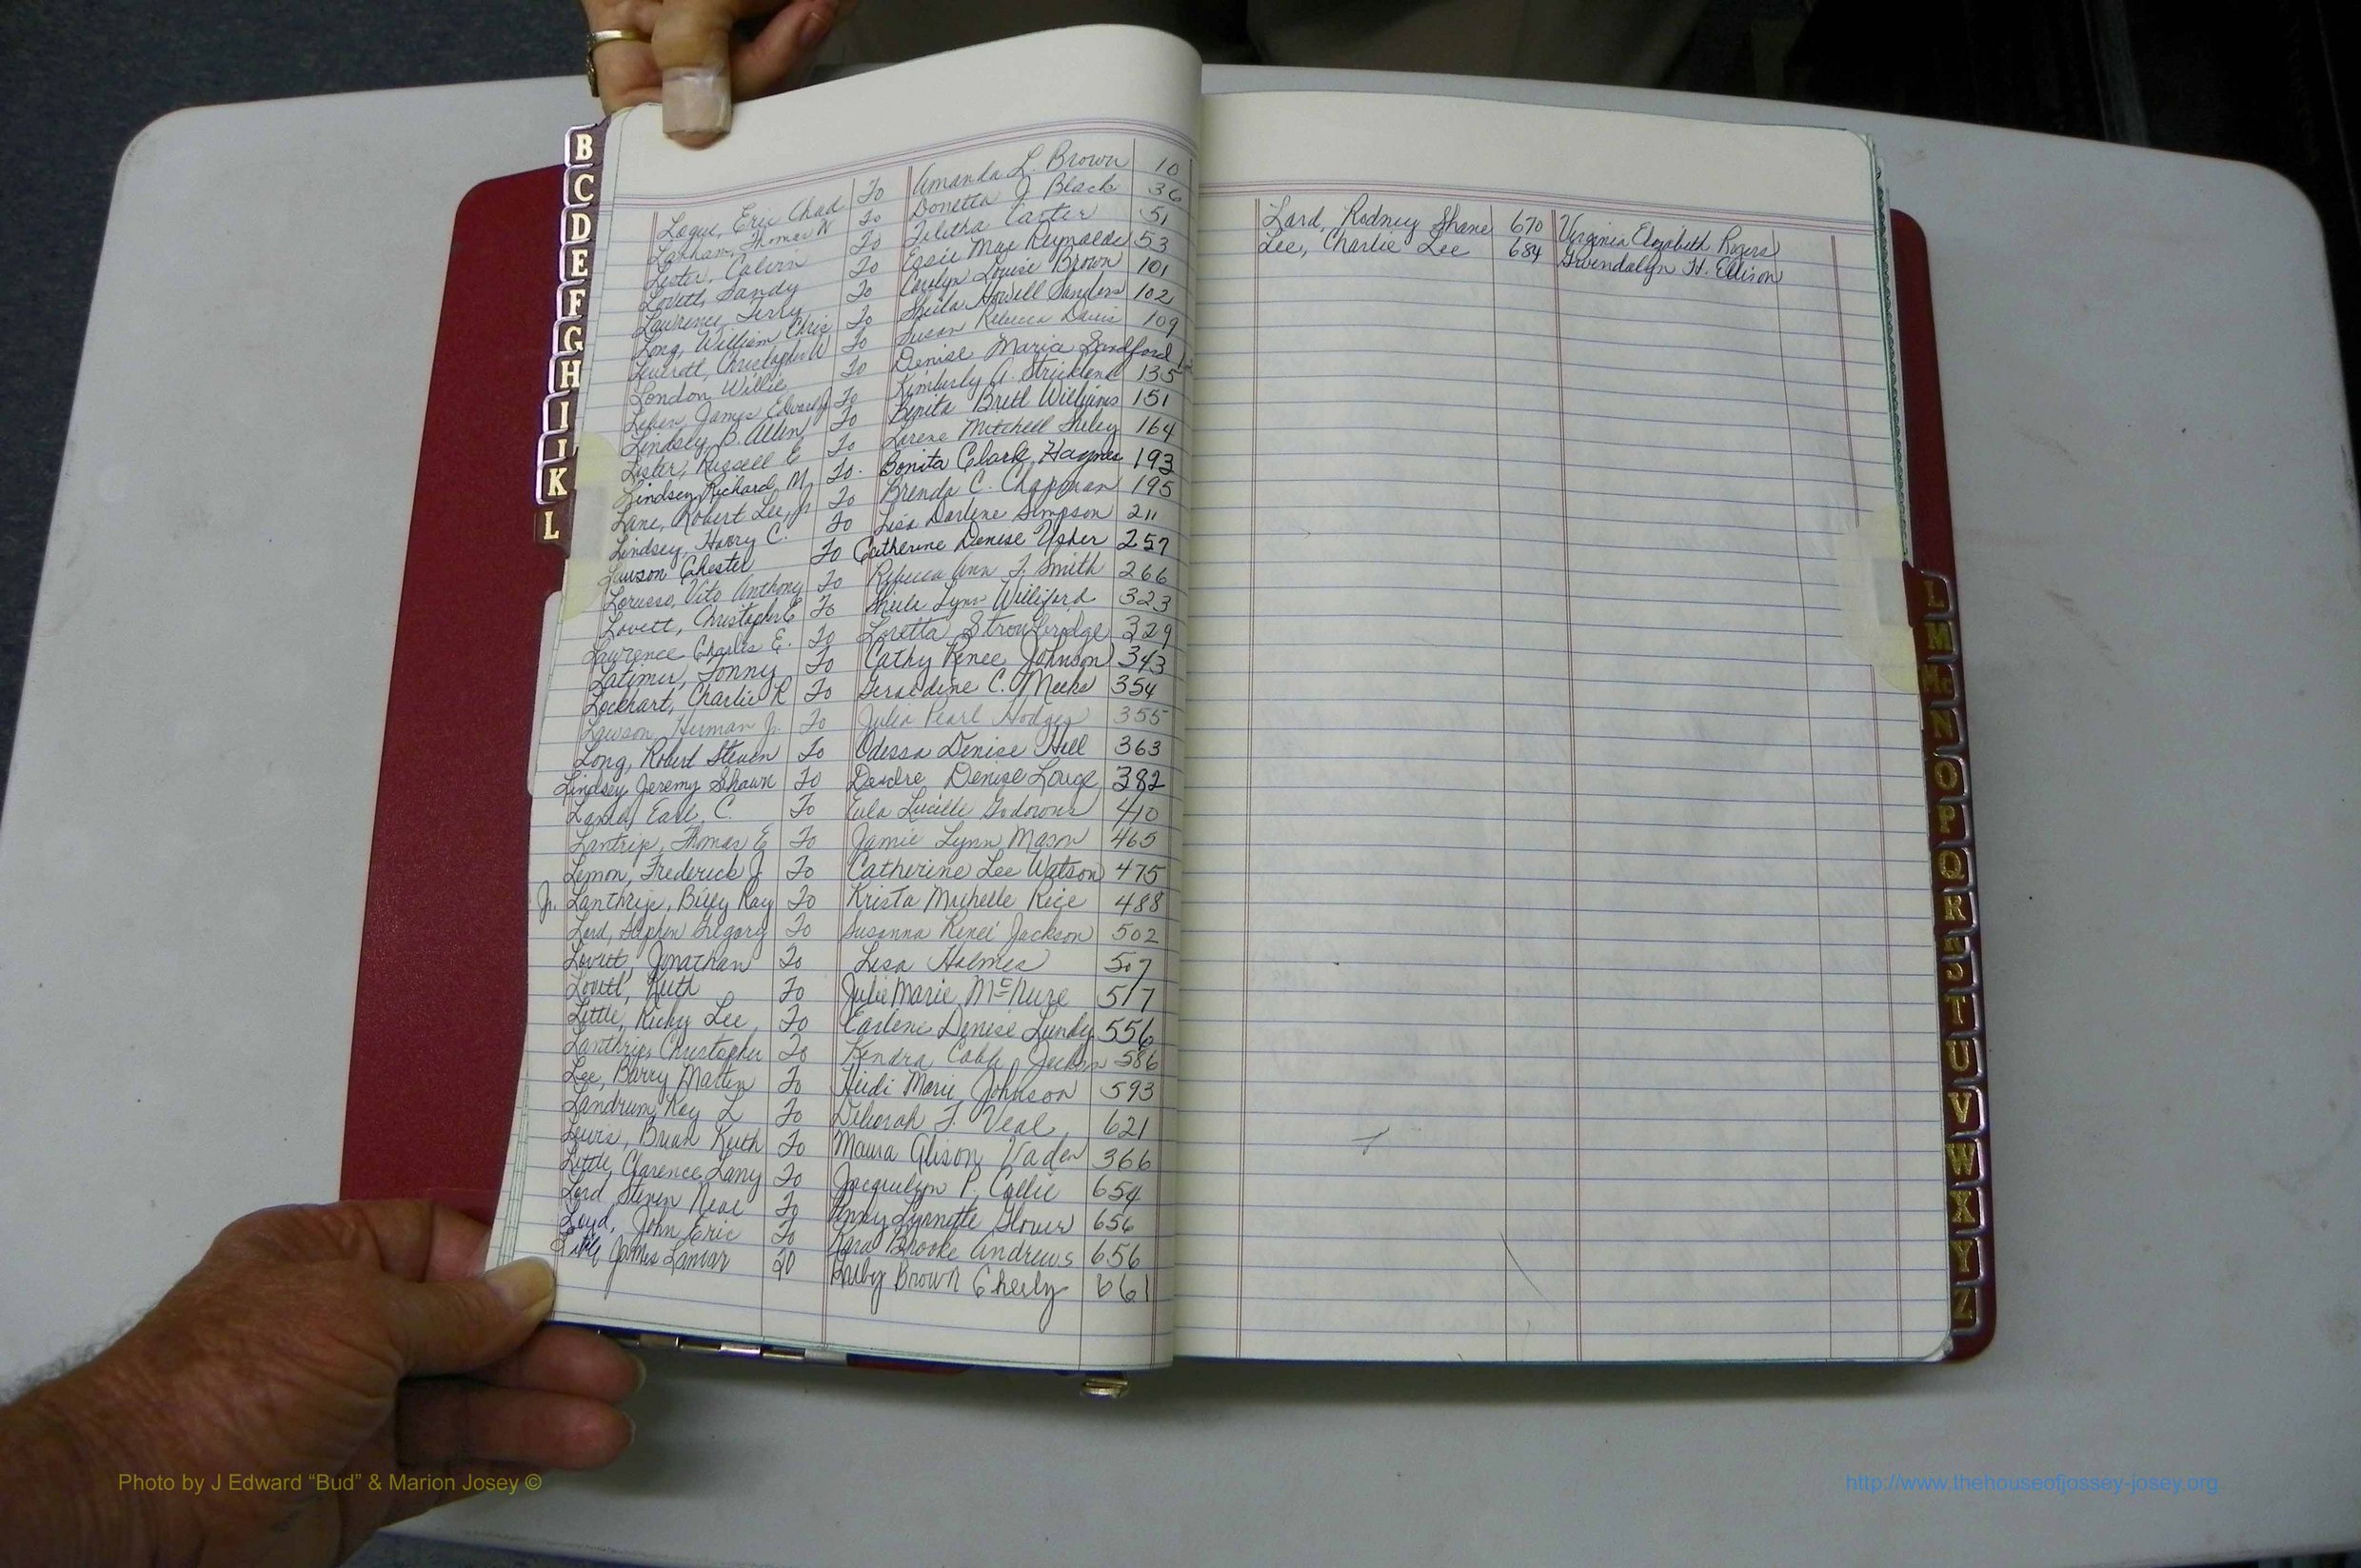 B
C
D
E
F
G
H
I
J
K
L
Logue, Eric Chad To Amanda L. Brown 10
Lanham, Thomas W To Donetta J Black 36
Lester, Calvin To Talitha Carter 51
Lovett, Sandy To Essie Mae Reynolds 53
Lawrence, Terry To Carolyn Louise Brown 101
Long, William Chris To Sheila Howell Sanders 102
Leverett, Christopher W To Susan Rebecca Davis 109
London, Willie To Denise Maria Sandford
James Edward Jr To Kimberly A. Strickland 135
Lindsey, B. Allen To Benita Brett Williams 151
Lister, Russell E To Lorene Mitchell 164
Lindsey, Richard M, To. Bonita Clark Haynes 193
Lane, Robert Lee, Jr To Brenda C. Chapman 195
Lindsey, Harry C. To Lisa Darlene Simpson 211
Lawson Chester To Catherine Denise Usher 257
Lorusso, Vito Anthony To Rebecca Ann T. Smith 266
Lovett, Christopher E To Sheila Lynn Williford 323
Lawrence Charles E. To Loretta Strowbridge 329
Latimer, Tonny To Cathy Renee Johnson 343
Lockhart, Charlie R To Geraldine C. Meeks 354
Lawson, Herman Jr. To Julia Pearl Hodges 355
Long, Robert Steven To Odessa Denise Hill 363
Lindsey Jeremy Shawn To Deidre Denise Louge 382
Land, Earl C. To Eula Lucille Godowns 410
Lantrip, Thomas E To Jamie Lynn Mason 465
Lemon, Frederick J. To Catherine Lee Watson 475
Jr. Lanthrip, Billy Ray To Krista Michelle Rice 488
Lord, Stephen Gregory To Susanna Reneé Jackson 502
Lovett, Jonathan To Lisa Holmes 507
Lovett, Keith To Julie Marie McNure 517
Little, Ricky Lee, To Earlene Denise Lundy 556
Lanthrip, Christopher To Kendra Cobb Jackson 586
Lee, Barry Matten To Heidi Marie Johnson 593
Landrum, Roy L To Deborah F. Veal 621
Lewis, Brian Keith To Maura Alison Vaden 366
Little, Clarence Lany To Jacquelyn P. Collie 654
Lord Steven Neal To Amy Lynnette Glover 656
Loyd, John Eric To Kara Brooke Andrews 656
Little James Lamar To Brown Cheely 661
Lord, Rodney Shane 670 Virginia Elizabeth Rogers
Lee, Charlie Lee 684 Gwendolyn H. Ellison
L
M
Mc
N
O
P
Q
R
S
T
U
V
W
X
Y
Z
Photo by J Edward “Bud” & Marion Josey ©
http://www.thehouseofjossey-josey.org